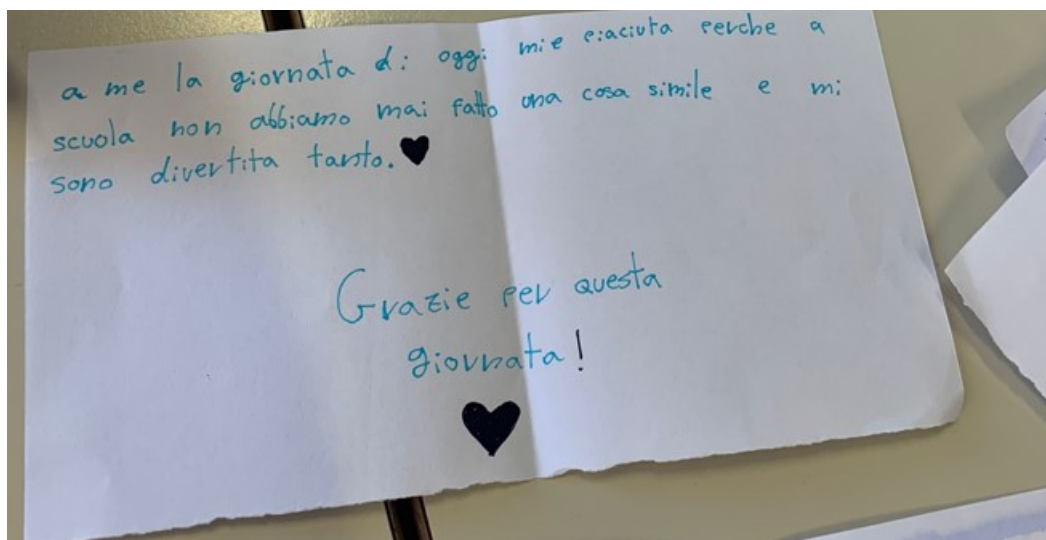 a me la giornata di oggi mie piaciuta perche a
scuola non abbiamo mai fatto una cosa simile e mi
sono divertita tanto.
Grazie per questa
giornata!